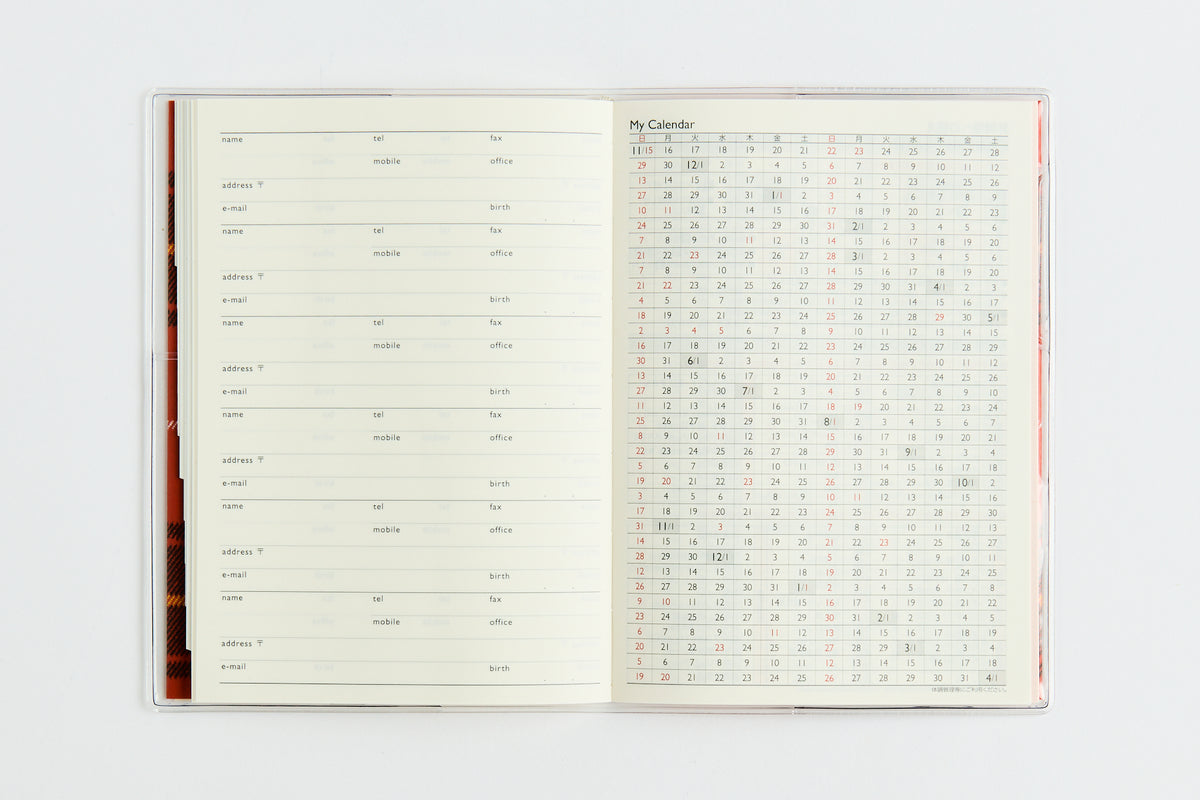 name tel fax
mobile office
address 〒
e-mail birth
name tel fax
mobile office
address 〒
e-mail birth
name tel fax
mobile office
address 〒
e-mail birth
name tel fax
mobile office
address 〒
e-mail birth
name tel fax
mobile office
address 〒
e-mail birth
name tel fax
mobile office
address 〒
e-mail birth
My Calendar
日 月 火 水 木 金 土 日 月 火 水 木 金 土
11/15 16 17 18 19 20 21 22 23 24 25 26 27 28
29 30 12/1 2 3 4 5 6 7 8 9 10 11 12
13 14 15 16 17 18 19 20 21 22 23 24 25 26
27 28 29 30 31 1/1 2 3 4 5 6 7 8 9
10 11 12 13 14 15 16 17 18 19 20 21 22 23
24 25 26 27 28 29 30 31 2/1 2 3 4 5 6
7 8 9 10 11 12 13 14 15 16 17 18 19 20
21 22 23 24 25 26 27 28 3/1 2 3 4 5 6
7 8 9 10 11 12 13 14 15 16 17 18 19 20
21 22 23 24 25 26 27 28 29 30 31 4/1 2 3
4 5 6 7 8 9 10 11 12 13 14 15 16 17
18 19 20 21 22 23 24 25 26 27 28 29 30 5/1
2 3 4 5 6 7 8 9 10 11 12 13 14 15
16 17 18 19 20 21 22 23 24 25 26 27 28 29
30 31 6/1 2 3 4 5 6 7 8 9 10 11 12
13 14 15 16 17 18 19 20 21 22 23 24 25 26
27 28 29 30 7/1 2 3 4 5 6 7 8 9 10
11 12 13 14 15 16 17 18 19 20 21 22 23 24
25 26 27 28 29 30 31 8/1 2 3 4 5 6 7
8 9 10 11 12 13 14 15 16 17 18 19 20 21
22 23 24 25 26 27 28 29 30 31 9/1 2 3 4
5 6 7 8 9 10 11 12 13 14 15 16 17 18
19 20 21 22 23 24 25 26 27 28 29 30 10/1 2
3 4 5 6 7 8 9 10 11 12 13 14 15 16
17 18 19 20 21 22 23 24 25 26 27 28 29 30
31 11/1 2 3 4 5 6 7 8 9 10 11 12 13
14 15 16 17 18 19 20 21 22 23 24 25 26 27
28 29 30 12/1 2 3 4 5 6 7 8 9 10 11
12 13 14 15 16 17 18 19 20 21 22 23 24 25
26 27 28 29 30 31 1/1 2 3 4 5 6 7 8
9 10 11 12 13 14 15 16 17 18 19 20 21 22
23 24 25 26 27 28 29 30 31 2/1 2 3 4 5
6 7 8 9 10 11 12 13 14 15 16 17 18 19
20 21 22 23 24 25 26 27 28 29 3/1 2 3 4
5 6 7 8 9 10 11 12 13 14 15 16 17 18
19 20 21 22 23 24 25 26 27 28 29 30 31 4/1
体調管理等にご利用ください。